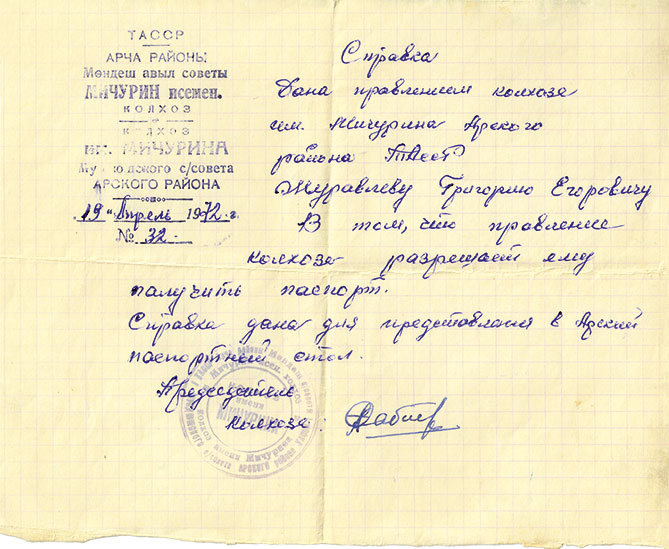 ТАССР
АРЧА РАЙОНЫ
Мөндеш авыл советы
МИЧУРИН исемен.
КОЛХОЗ
КОЛХОЗ
им. МИЧУРИНА
с/совета
АРСКОГО РАЙОНА
"19" Апрель 1972 г.
№ 32
Справка
Дана правлением колхоза
им. Мичурина Арского
района ТАССР
Журавлеву Григорию Егоровичу
В том, что правление
колхоза разрешает ему
получить паспорт.
Справка дана для представления в Арский
паспортный стол.
Председатель
колхоза:
КОЛХОЗ
имени
МИЧУРИНА